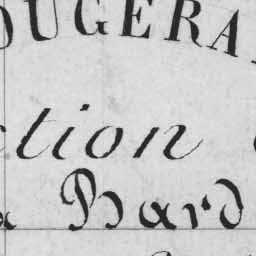 OUGERA
ction
a Bard